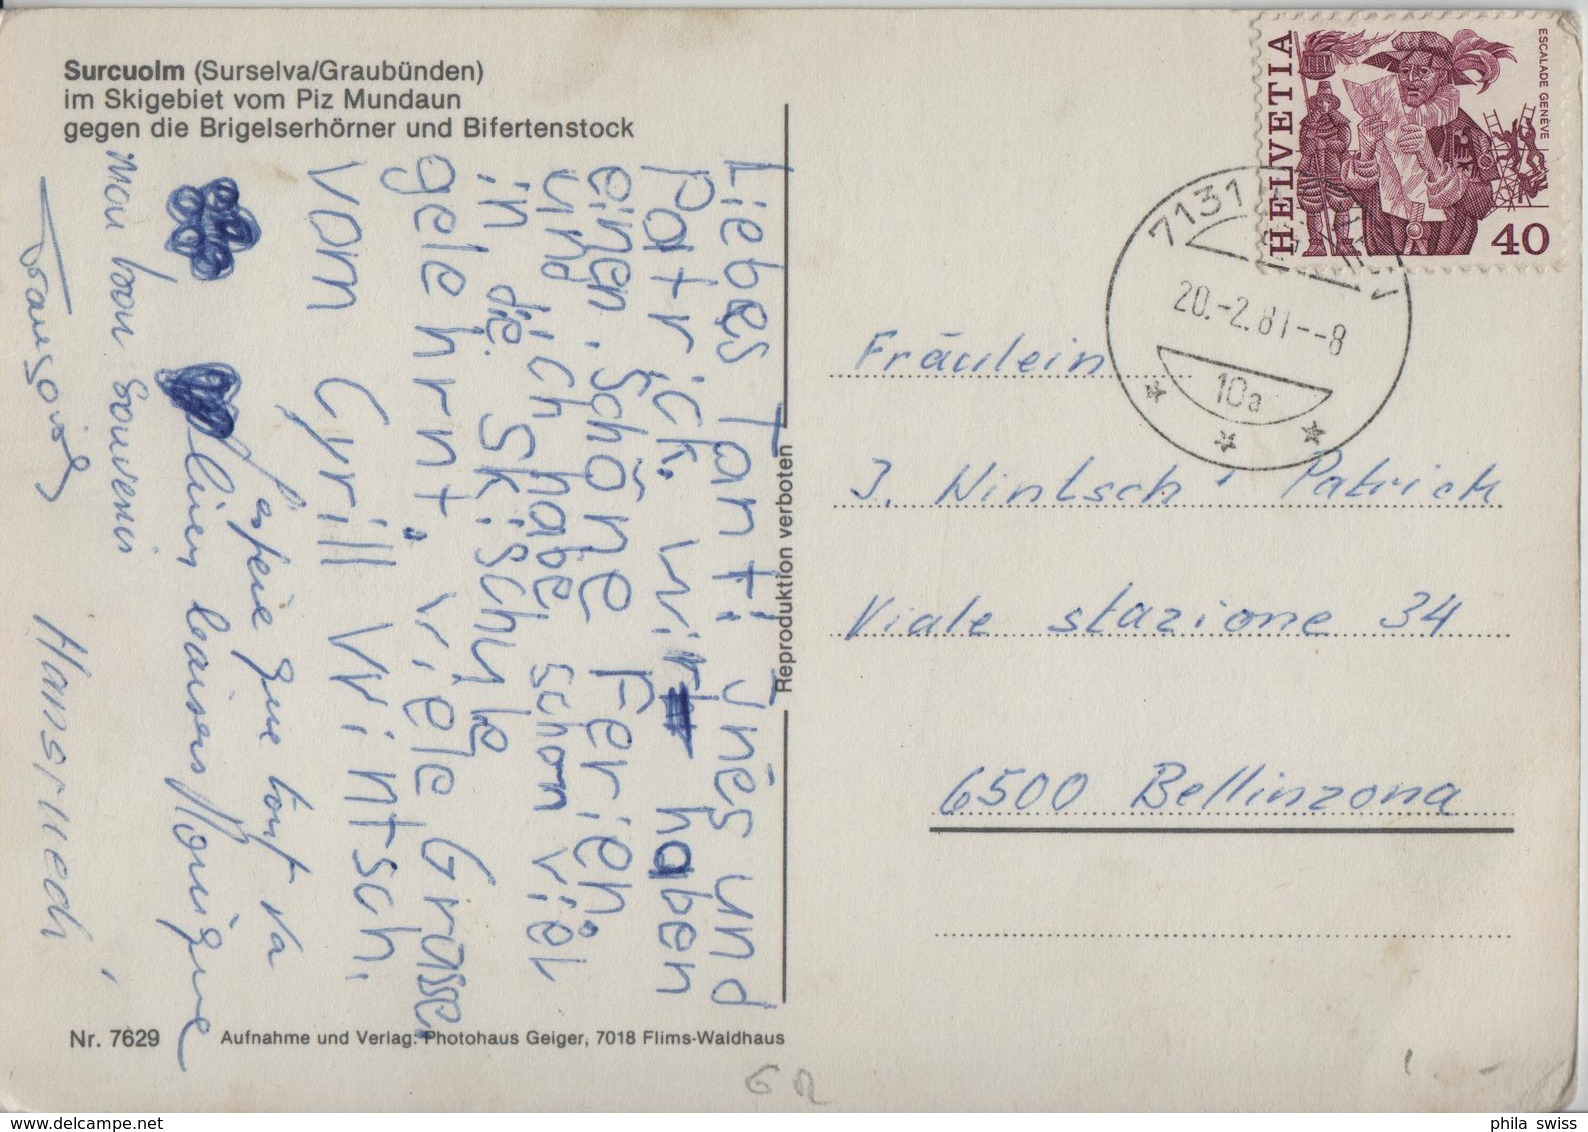 Surcuolm (Surselva/Graubünden)
im Skigebiet vom Piz Mundaun
gegen die Brigelserhörner und Bifertenstock
Liebes Tanti Jnès und
Patrick. wir haben
einen. Schöne Ferien,
und ich habe schon viel
in die Skischule
gelehrnt. viele Grüsse
vom Cyrill Wintsch.
J'espère que tout va
bien baisers Monique
Mon bon souvenir
Françoise
Hansruedi
Reproduktion verboten
Nr. 7629
Aufnahme und Verlag: Photohaus Geiger, 7018 Flims-Waldhaus
HELVETIA
ESCALADE GENÈVE
40
7131
20.-2.81--8
10a
Fräulein
J. Wintsch + Patrick
Viale stazione 34
6500 Bellinzona
GR
phila swiss